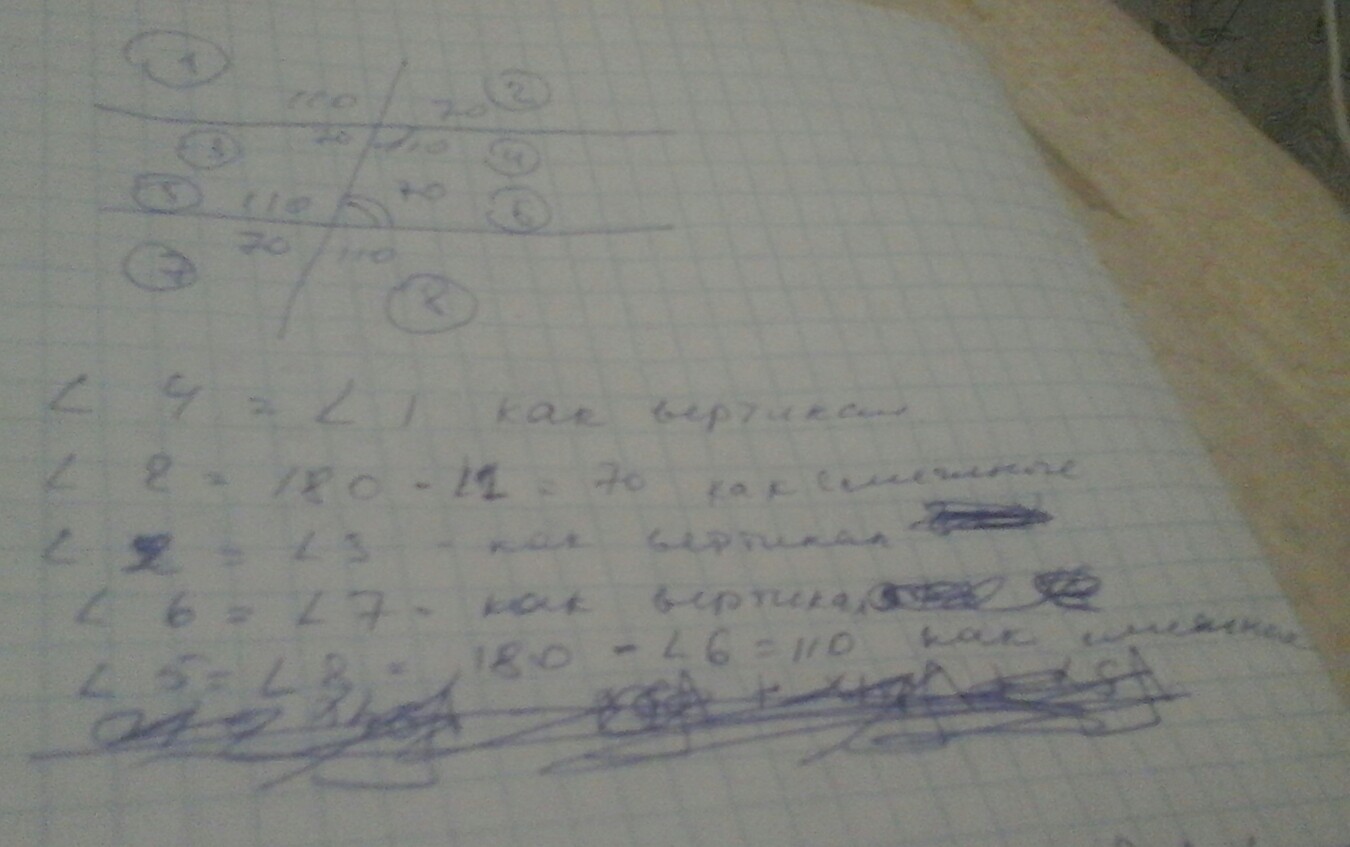 1
110 70 2
3 70 110 4
5 110 70 6
7 70 110
8
∠ 4 = ∠ 1 как вертикал
∠ 2 = 180 - ∠1 = 70 как смежные
∠ 2 = ∠3 - как вертикал
∠ 6 = ∠7 - как вертикал
∠ 5 = ∠8 = 180 - ∠6 = 110 как смежные